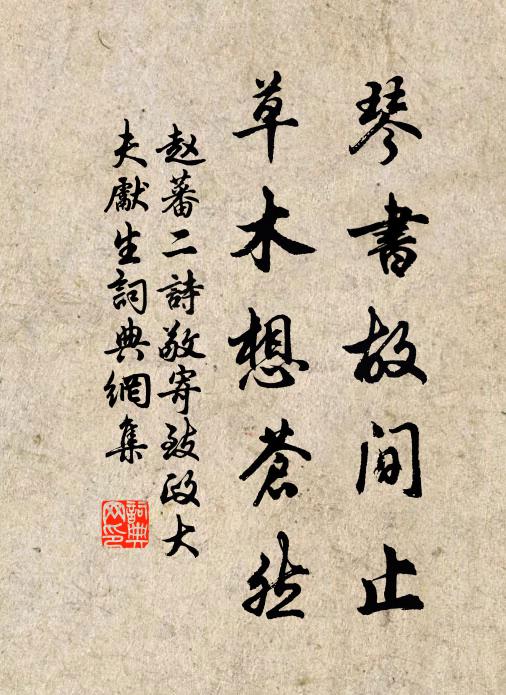 琴書故间止
草木想蒼然
赵蕃二詩敬寄致政大
夫獻生詞典網集
詞典
网印